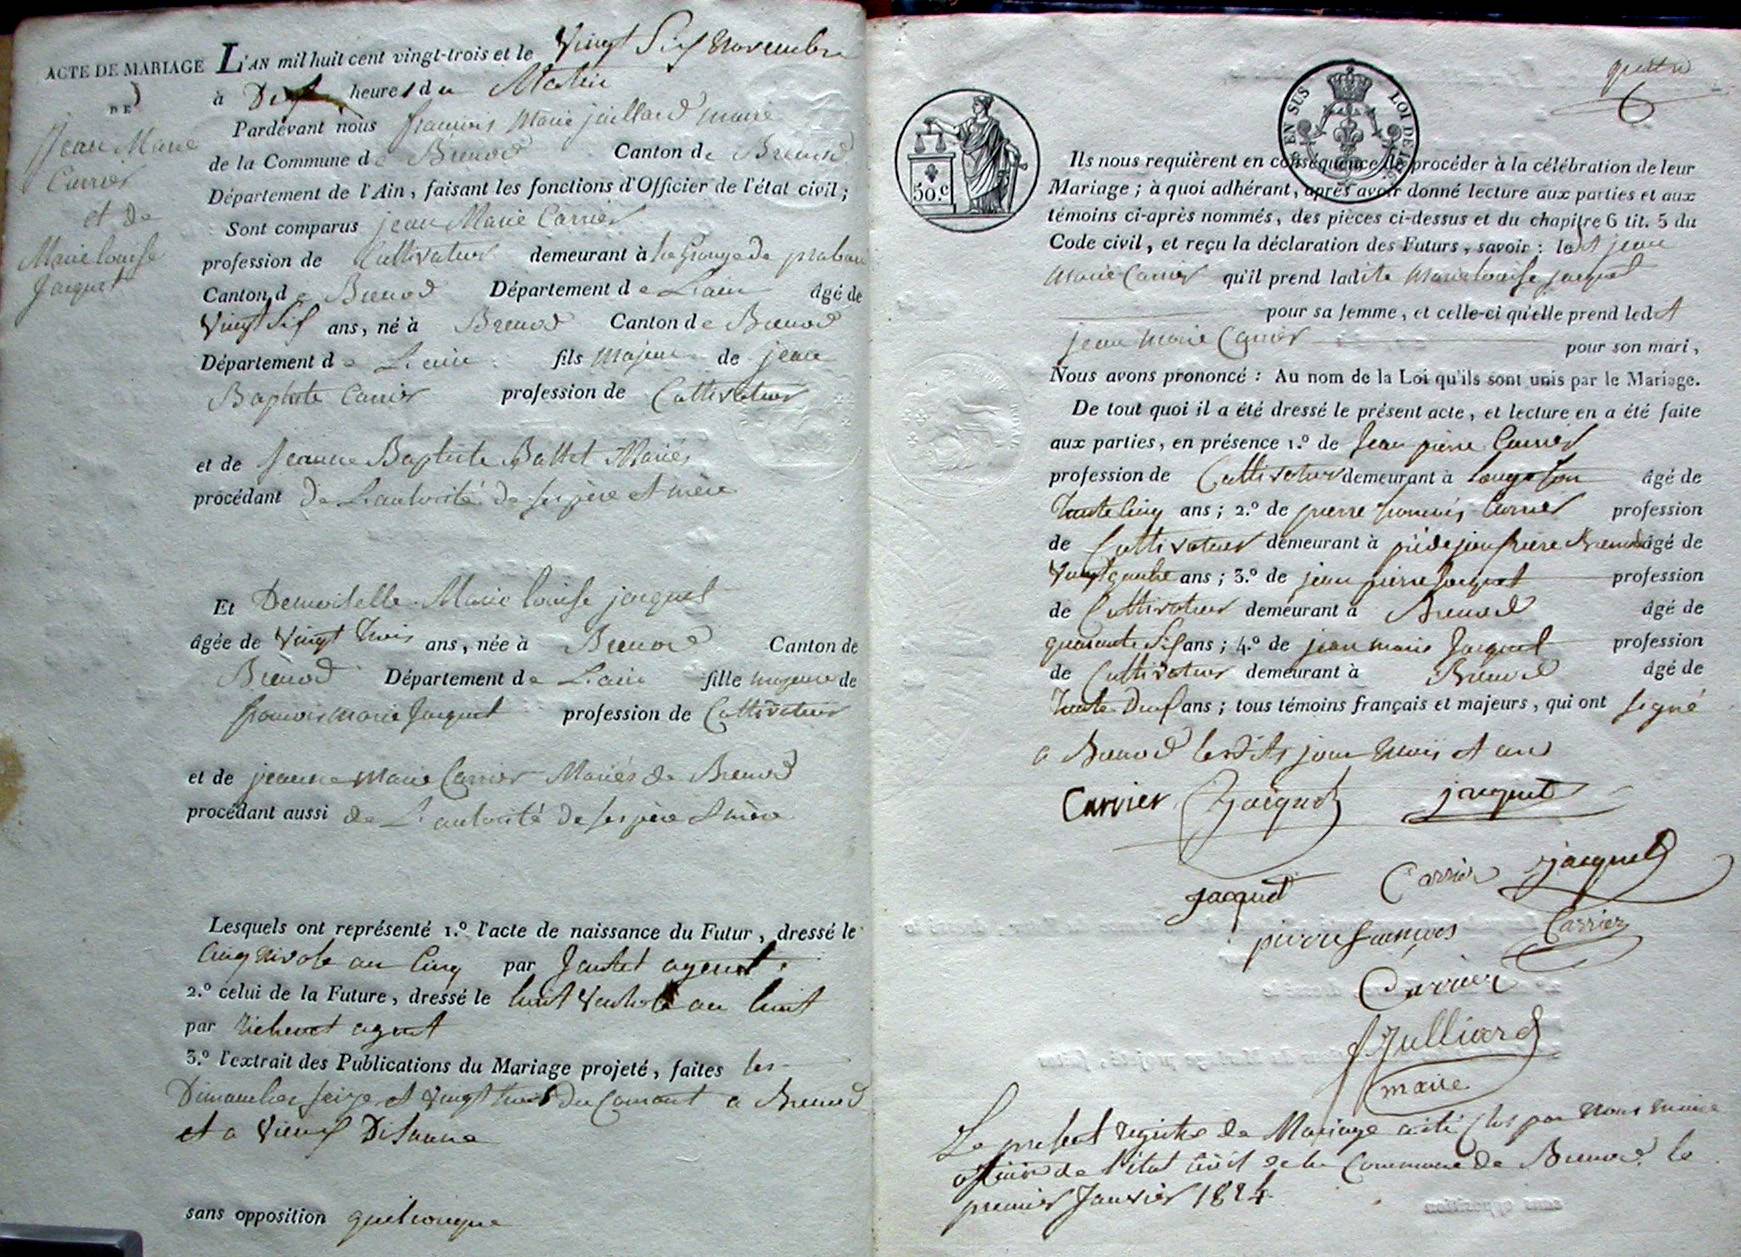 ACTE DE MARIAGE
DE
Jean Marie
Carrier
et de
Marie louise
Jacquet
L'AN mil huit cent vingt-trois et le Vingt Six novembre
à Dix heures du Matin
Pardevant nous françois Marie juillard maire
de la Commune de Brenod Canton de Brenod
Département de l'Ain, faisant les fonctions d'Officier de l'état civil;
Sont comparus jean Marie Carrier
profession de Cultivateur demeurant à la Grange de
Canton de Brenod Département de L'ain âgé de
Vingt Six ans, né à Brenod Canton de Brenod
Département de L'ain fils majeur de jean
Baptiste Carrier profession de Cultivateur
et de Jeanne Baptiste Battet Mariés
procédant de L'autorité de ses père et mère
Et Demoiselle Marie louise jacquet
âgée de Vingt trois ans, née à Brenod Canton de
Brenod Département de L'ain fille majeure de
francois marie Jacquet profession de Cultivateur
et de jeanne marie Carrier Mariés de Brenod
procédant aussi de L'autorité de ses père et mère
Lesquels ont représenté 1.º l'acte de naissance du Futur, dressé le
Cinq nivose an Cinq par Jantet agent.
2.º celui de la Future, dressé le huit Ventose an huit
par Richenet agent
3.º l'extrait des Publications du Mariage projeté, faites les
Dimanches seize et Vingt trois du Courant a Brenod
et a Vieux Disenave
sans opposition quelconque
quatre
50.c
EN SUS
LOI DE
Ils nous requièrent en conséquence de procéder à la célébration de leur
Mariage; à quoi adhérant, après avoir donné lecture aux parties et aux
témoins ci-après nommés, des pièces ci-dessus et du chapitre 6 tit. 5 du
Code civil, et reçu la déclaration des Futurs, savoir: ledt jean
marie Carrier qu'il prend ladite Marie louise jacquet
pour sa femme, et celle-ci qu'elle prend ledt
jean marie Carrier pour son mari,
Nous avons prononcé: Au nom de la Loi qu'ils sont unis par le Mariage.
De tout quoi il a été dressé le présent acte, et lecture en a été faite
aux parties, en présence 1.º de Jean pierre Carrier
profession de Cultivateur demeurant à âgé de
trente Cinq ans; 2.º de pierre françois Carrier profession
de Cultivateur demeurant à Brenod âgé de
Vingt quatre ans; 3.º de jean pierre Jacquet profession
de Cultivateur demeurant à Brenod âgé de
quarante Six ans; 4.º de jean marie Jacquet profession
de Cultivateur demeurant à Brenod âgé de
trente Deux ans; tous témoins français et majeurs, qui ont signé
a Brenod lesdits jour mois et an
Carrier Jacquet jacquet
jacquet Carrier jacquet
pierre françois Carrier
Carrier
f Julliard
maire
Le present registre de Mariage a été Clos par nous maire
officier de l'état Civil de la Commune de Brenod le
premier Janvier 1824